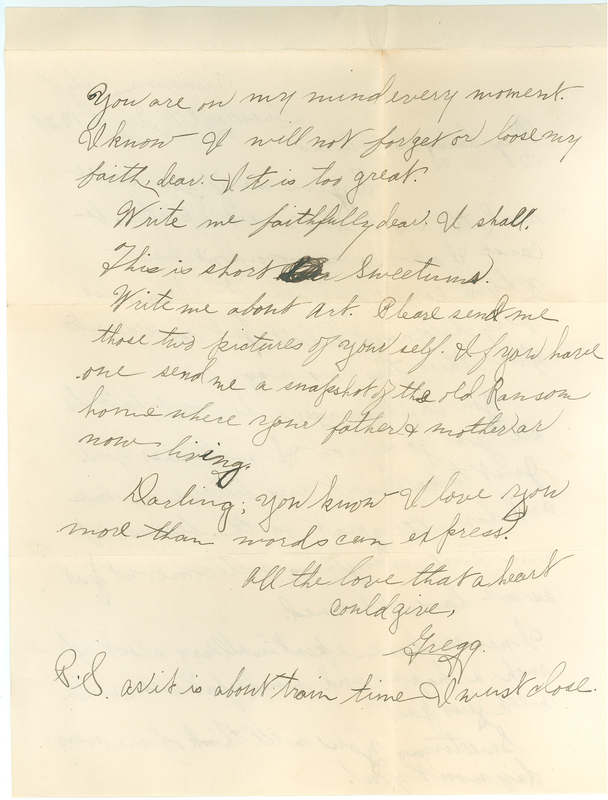 You are on my mind every moment.
I know I will not forget or loose my
faith, dear. It is too great.
Write me faithfully dear. I shall.
This is short Sweetums.
Write me about art. Please send me
those two pictures of your self. If you have
one send me a snapshot of the old Ransom
home where your father & mother ar
now living.
Darling; you know I love you
more than words can express.
All the love that a heart
could give,
Gregg.
P.S. as it is about train time I must close.